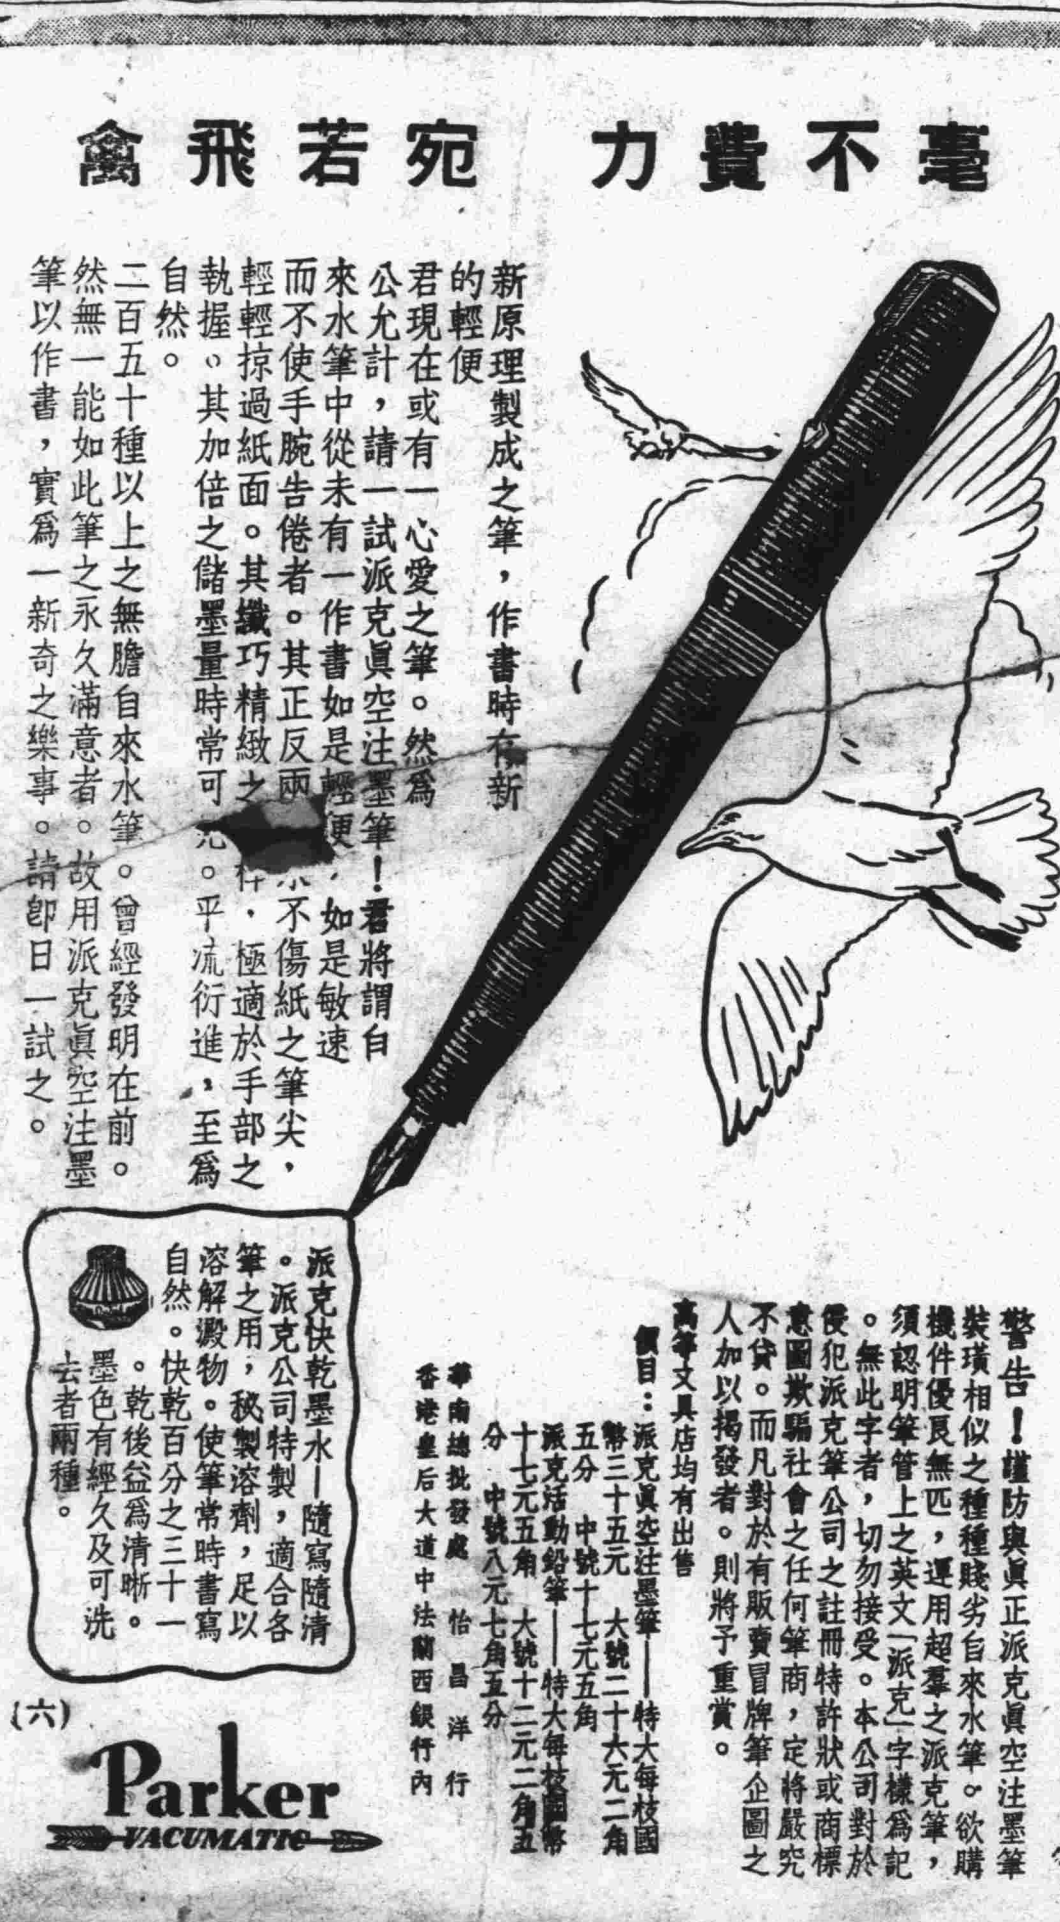 毫不費力 宛若飛禽
新原理製成之筆，作書時有新
的輕便
君現在或有一心愛之筆。然爲
公允計，請一試派克眞空注墨筆！君將謂自
來水筆中從未有一作書如是輕便，如是敏速
而不使手腕告倦者。其正反兩 不傷紙之筆尖，
輕輕掠過紙面。其纖巧精緻之 桿，極適於手部之
執握。其加倍之儲墨量時常可 。平流衍進，至爲
自然。
二百五十種以上之無膽自來水筆。曾經發明在前。
然無一能如此筆之永久滿意者。故用派克眞空注墨
筆以作書，實爲一新奇之樂事。請卽日一試之。
警告！謹防與眞正派克眞空注墨筆
裝璜相似之種種賤劣自來水筆。欲購
機件優良無匹，運用超羣之派克筆，
須認明筆管上之英文「派克」字樣爲記
。無此字者，切勿接受。本公司對於
侵犯派克筆公司之註冊特許狀或商標
意圖欺騙社會之任何筆商，定將嚴究
不貸。而凡對於有販賣冒牌筆企圖之
人加以揭發者。則將予重賞。
高等文具店均有出售
價目：派克眞空注墨筆——特大每枝國
幣三十五元 大號二十六元二角
五分 中號十七元五角
派克活動鉛筆——特大每枝國幣
十七元五角 大號十二元二角五
分 中號八元七角五分
華南總批發處 怡昌洋行
香港皇后大道中法蘭西銀行內
派克快乾墨水—隨寫隨清
。派克公司特製，適合各
筆之用，秘製溶劑，足以
溶解澱物。使筆常時書寫
自然。快乾百分之三十一
。乾後益爲清晰。
墨色有經久及可洗
去者兩種。
(六)
Parker
VACUMATIC